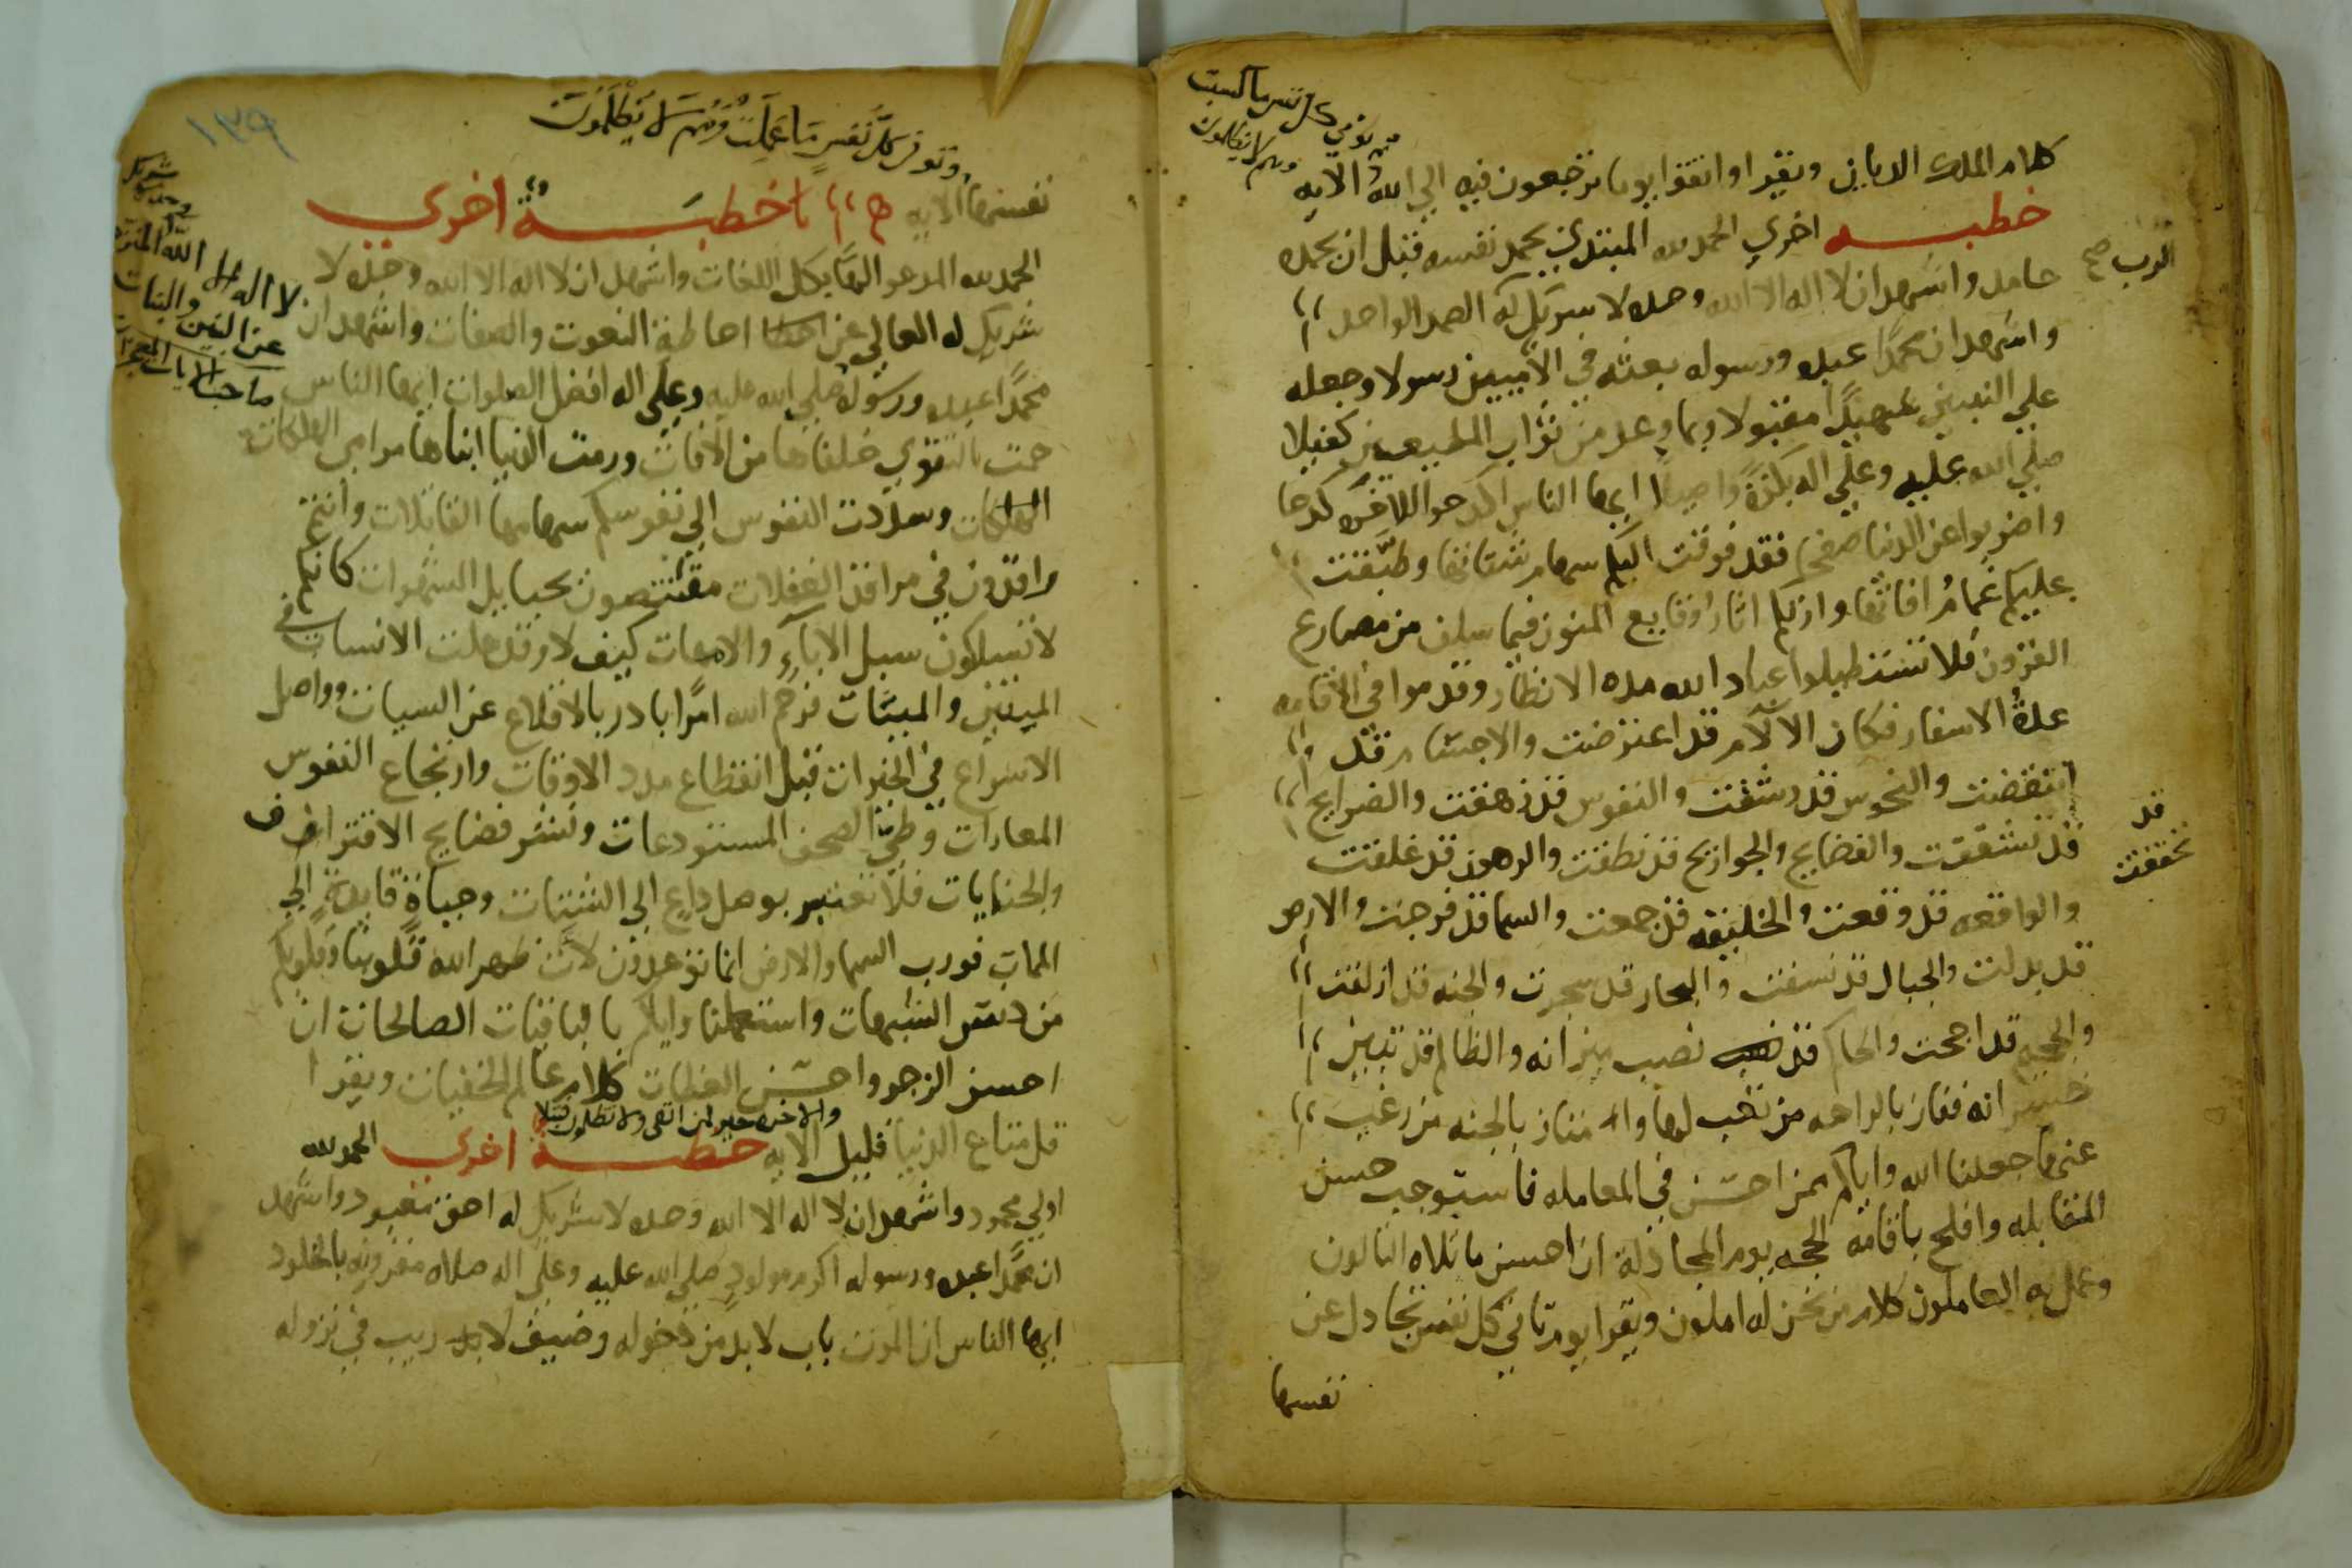 كلام الملك الديان ويقرا واتقوا يوما ترجعون فيه الى الله الآيه
ثم توفى كل نفس ما كسبت
وهم لا يظلمون
خطبه اخرى الحمد لله المبتدي بحمد نفسه قبل ان يحمده
حامد واشهد ان لا اله الا الله وحده لا شريك له الصمد الواحد
الرب صح
واشهد ان محمدا عبده ورسوله بعثه في الاميين رسولا وجعله
على النبيين مقبولا وبما وعد من ثواب المطيعين كفيلا
صلى الله عليه وعلى اله بكرة واصيلا ايها الناس اكدحوا للاخره كدحا
واضربوا عن الدنيا صفحا فقد فوقت اليكم سهام شتاتها وطبقت
عليكم غمام افاتها وارتكم اثار وقايع المنون فيما سلف من مصارع
القرون فلا تستطيلوا عباد الله مده الانظار وقدموا في الاقامه
عدة الاسفار فكان الآلام قد اعترضت والاجسام قد
انتقضت والنفوس قد زهقت والضرايح
قد تشققت والفضايح والجوارح قد نطقت والرهون قد غلقت
قد
تحققت
والواقعه قد وقعت والخليقه قد جمعت والسما قد فرجت والارض
قد بدلت والجبال قد نسفت والبحار قد سجرت والجنه قد ازلفت
والجحيم قد اججت والحاكم قد نصب ميزانه والظالم قد تبين
خسرانه ففاز بالراحه من تعب لها وامتاز بالجنه من رغب
عنها جعلنا الله واياكم ممن احسن في المعامله فاستوجب حسن
المقابله وافلح باقامه الحجه يوم المجادله ان احسن ما تلاه التالون
وعمل به العاملون كلام من نحن له املون ويقرا يوم تاتي كل نفس تجادل عن
نفسها
١٣٩
وتوفى كل نفس ما عملت وهم لا يظلمون
نفسها الآيه خطبة اخرى
الحمد لله المدعو الها بكل اللغات واشهد ان لا اله الا الله وحده لا
شريك له العالي عن احاطة النعوت والصفات واشهد ان
لا اله الا الله المنزه
عن البنين والبنات
محمدا عبده ورسوله صلى الله عليه وعلى اله افضل الصلوات ايها الناس
حمت بالتقوى خلفاها من الآفات ورمت الدنيا ابناها مرامي الهلكات
المهلكات وسددت النفوس الى نفوسكم سهامها القاتلات وانتم
راقدون في مراقد الغفلات مقتنصون بحبايل الشهوات كانكم
لا تسلكون سبيل الابآء والامهات كيف لا وقد حلت الانسات في
الميتين والميتات فرحم الله امرا بادر بالاقلاع عن السيات وواصل
الاسراع في الخيرات قبل انقطاع مدد الاوقات وارتجاع النفوس
المعارات وطي الصحف المستودعات ونشر فضايح الاقتراف
والجنايات فلا تعتبر بوصل داع الى الشتات وحياة قايدة الى
الممات فورب السما والارض انما توعدون لآت طهر الله قلوبنا وقلوبكم
من دنس الشبهات واستعملنا واياكم بالباقيات الصالحات ان
احسن الزجر واحسن العظات كلام عالم الخفيات ويقرا
والاخره خير لمن اتقى ولا تظلمون فتيلا
قل متاع الدنيا قليل الآيه خطبة اخرى الحمد لله
اولى محمود واشهد ان لا اله الا الله وحده لا شريك له احق معبود واشهد
ان محمدا عبده ورسوله اكرم مولود صلى الله عليه وعلى اله صلاه مقرونه بالخلود
ايها الناس ان الموت باب لا بد من دخوله وضيف لا ريب في نزوله